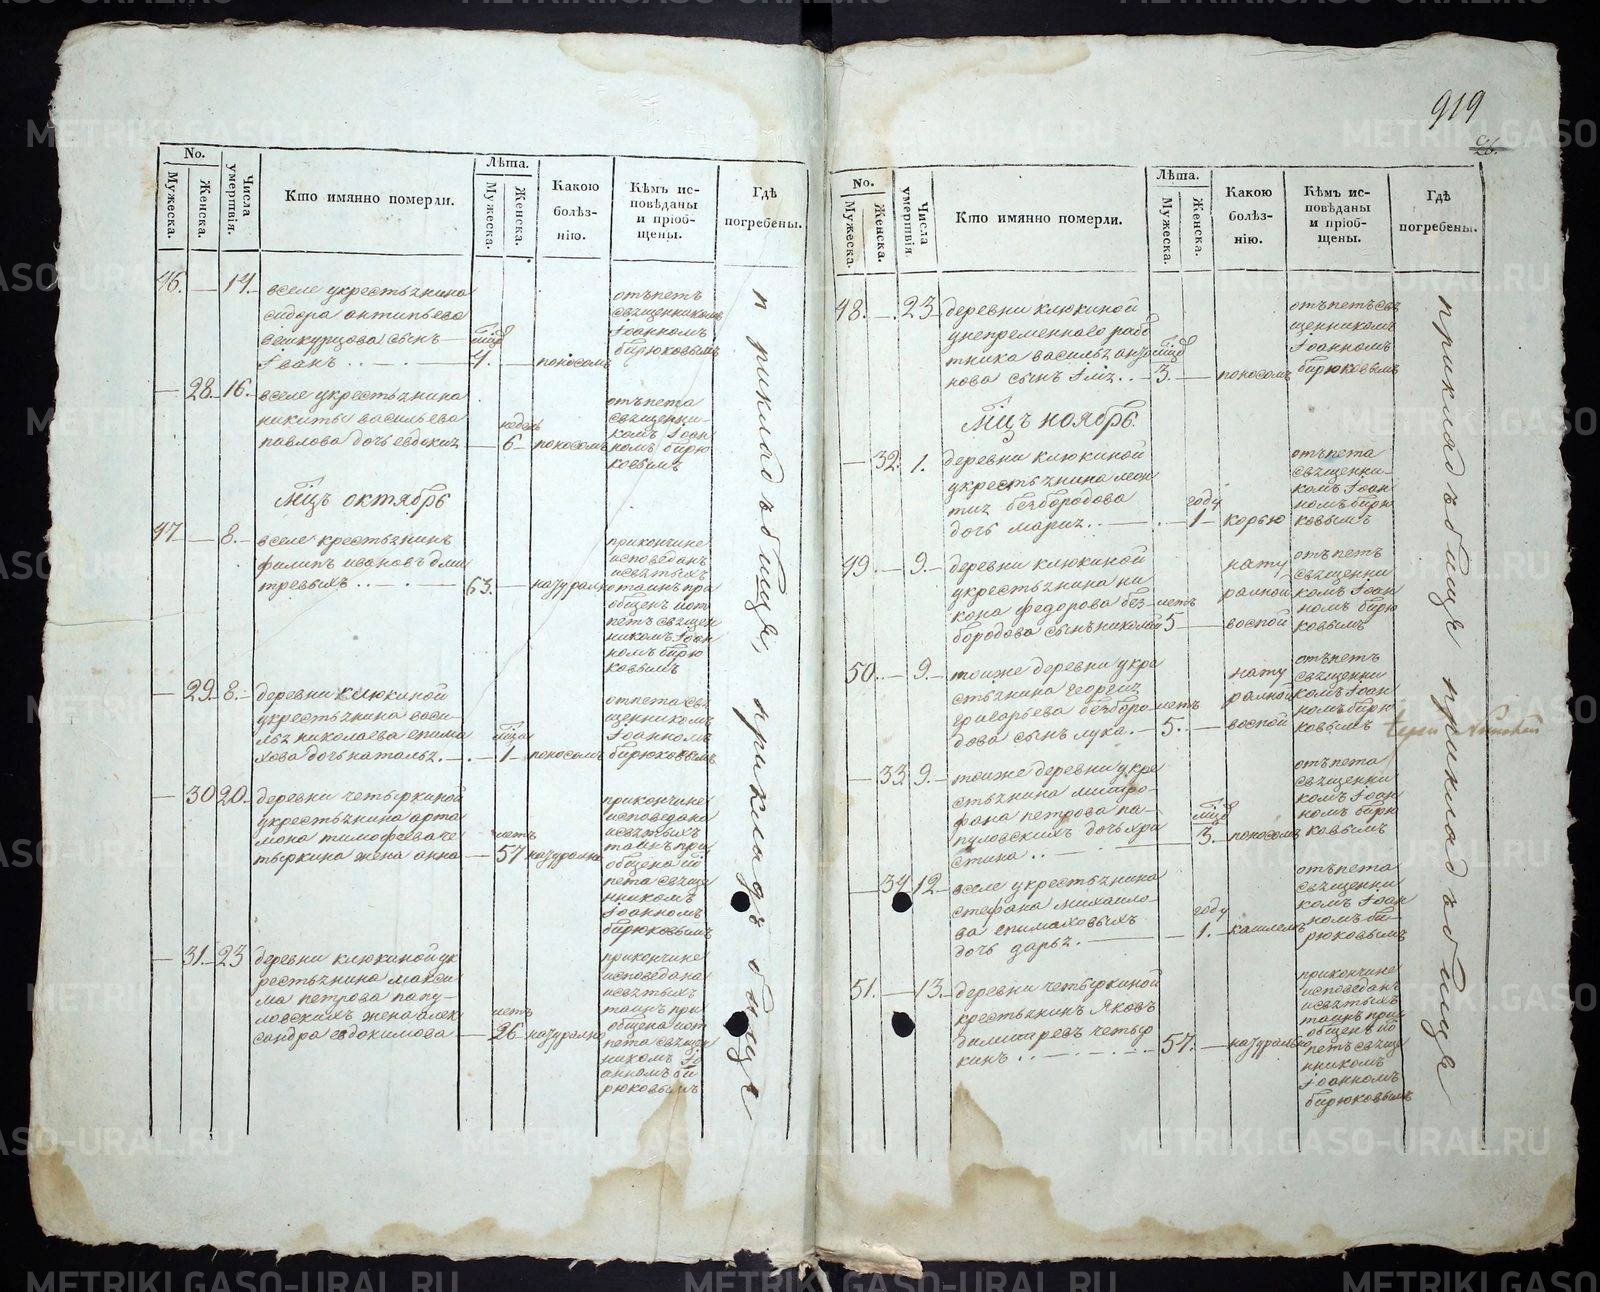 919
26.
No.
Мужеска.
Женска.
Числа умертвія.
Кто имянно померли.
Лѣта.
Мужеска.
Женска.
Какою болѣз-
нію.
Кѣмъ ис-
повѣданы
и пріоб-
щены.
Гдѣ
погребены.
46. — 14.
вселе укрестьянина
сидора антипьева
сынъ
Іванъ
4. — поносомъ
отъпетъ
священникомъ
Іоанномъ
бирюковымъ
— 28. 16.
вселе укрестьянина
никиты васильева
павлова дочь евдокия
недель
— 6 — поносомъ
отъпета
священни-
комъ Іоан
номъ бирю
ковымъ
мцъ октябрь
47 — 8.
вселе крестьянинъ
филипъ ивановъ дми
тревыхъ
63. — натурално
прикончине
исповеданъ
исвятыхъ
таинъ при
общенъ иот
петъ священ
никомъ Іоан
номъ бирю
ковымъ
— 29. 8.
деревни клюкиной
укрестьянина васи-
лья николаева епима
хова дочь наталья.
— 1 — поносомъ
отпета свя
щенникомъ
Іоанномъ
бирюковымъ
— 30 20.
деревни четыркиной
укрестьянина арта
мона тимофеева че
тыркина жена анна
летъ
— 57 натурално
прикончине
исповедана
исвятыхъ
таинъ при
общена ио
пета свяще
нникомъ
Іоанномъ
бирюковымъ
— 31. 23
деревни клюкиной ук
рестьянина макси
ма петрова папу-
ловскихъ жена алек
сандра евдокимова
летъ
— 26 натурално
прикончине
исповедана
исвятыхъ
таинъ при
общена иот
пета священ
никомъ Іо
анномъ би
рюковымъ
п рикладъбище, прикладъ бище
No.
Мужеска.
Женска.
Числа умертвія
Кто имянно померли.
Лѣта.
Мужеска.
Женска.
Какою
болѣз-
нію.
Кѣмъ ис-
повѣданы
и пріоб-
щены.
Гдѣ
погребены.
48. — 23
деревни клюкиной
унепременнаго рабо
тника василья
сынъ Ілья
3. — поносомъ
отъпетъ свя
щенникомъ
Іоанномъ
бирюковымъ
мцъ ноябрь.
— 32. 1.
деревни клюкиной
укрестьянина леон
тия безбородова
дочь мария
году
1 — корью
отъпета
священни-
комъ Іоан
номъ бирю
ковымъ
49. — 9.
деревни клюкиной
укрестьянина ни
кона федорова без-
бородова сынъ николай
летъ
5 —
нату
ралной
воспой
отъпетъ
священни
комъ Іоан
номъ бирю
ковымъ
50. — 9.
тоиже деревни укре
стьянина георгия
григорьева безборо-
дова сынъ лука.
летъ
5. —
нату
ралной
воспой
отъпетъ
священни
комъ Іоан
номъ бирю
ковымъ
— 33 9.
тоиже деревни укре
стьянина митро-
фана петрова па-
пуловскихъ дочь хри
стина
3. поносомъ
отъпета
священни
комъ Іоан
номъ бирю
ковымъ
— 34 12
вселе укрестьянина
стефана михаило-
ва епимаховыхъ
дочь дарья.
году
— 1. — кашлемъ
отъпета
священни
комъ Іоан
номъ би-
рюковымъ
51. — 13.
деревни четыркиной
крестьянинъ Яковъ
четыр
кинъ
57. — натурально
прикончине
исповеданъ
исвятыхъ
таинъ при
общенъ ио
петъ свяще
нникомъ
Іоанномъ
бирюковымъ
прикладъбище прикладъбище
METRIKI.GASO-URAL.RU